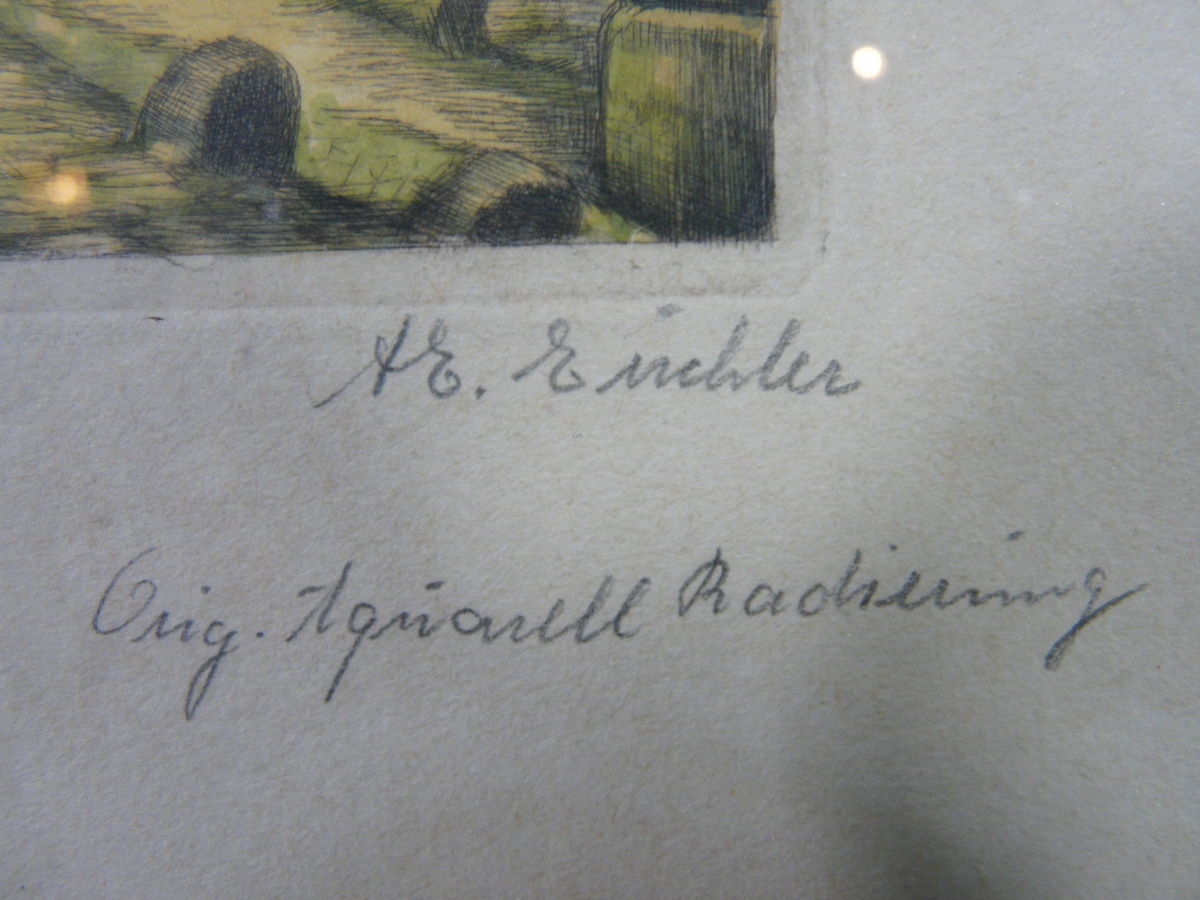 AE. Eichler
Orig. Aquarell Radierung